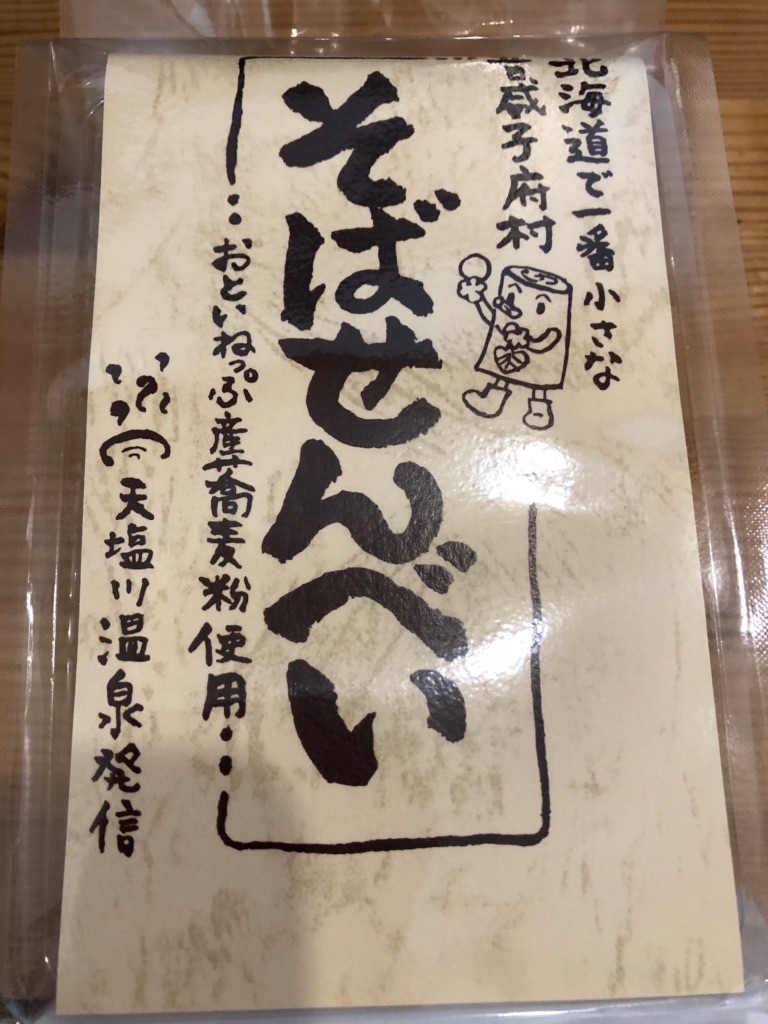 北海道で一番小さな
音威子府村
そばせんべい
おといねっぷ産蕎麦粉使用
天塩川温泉発信